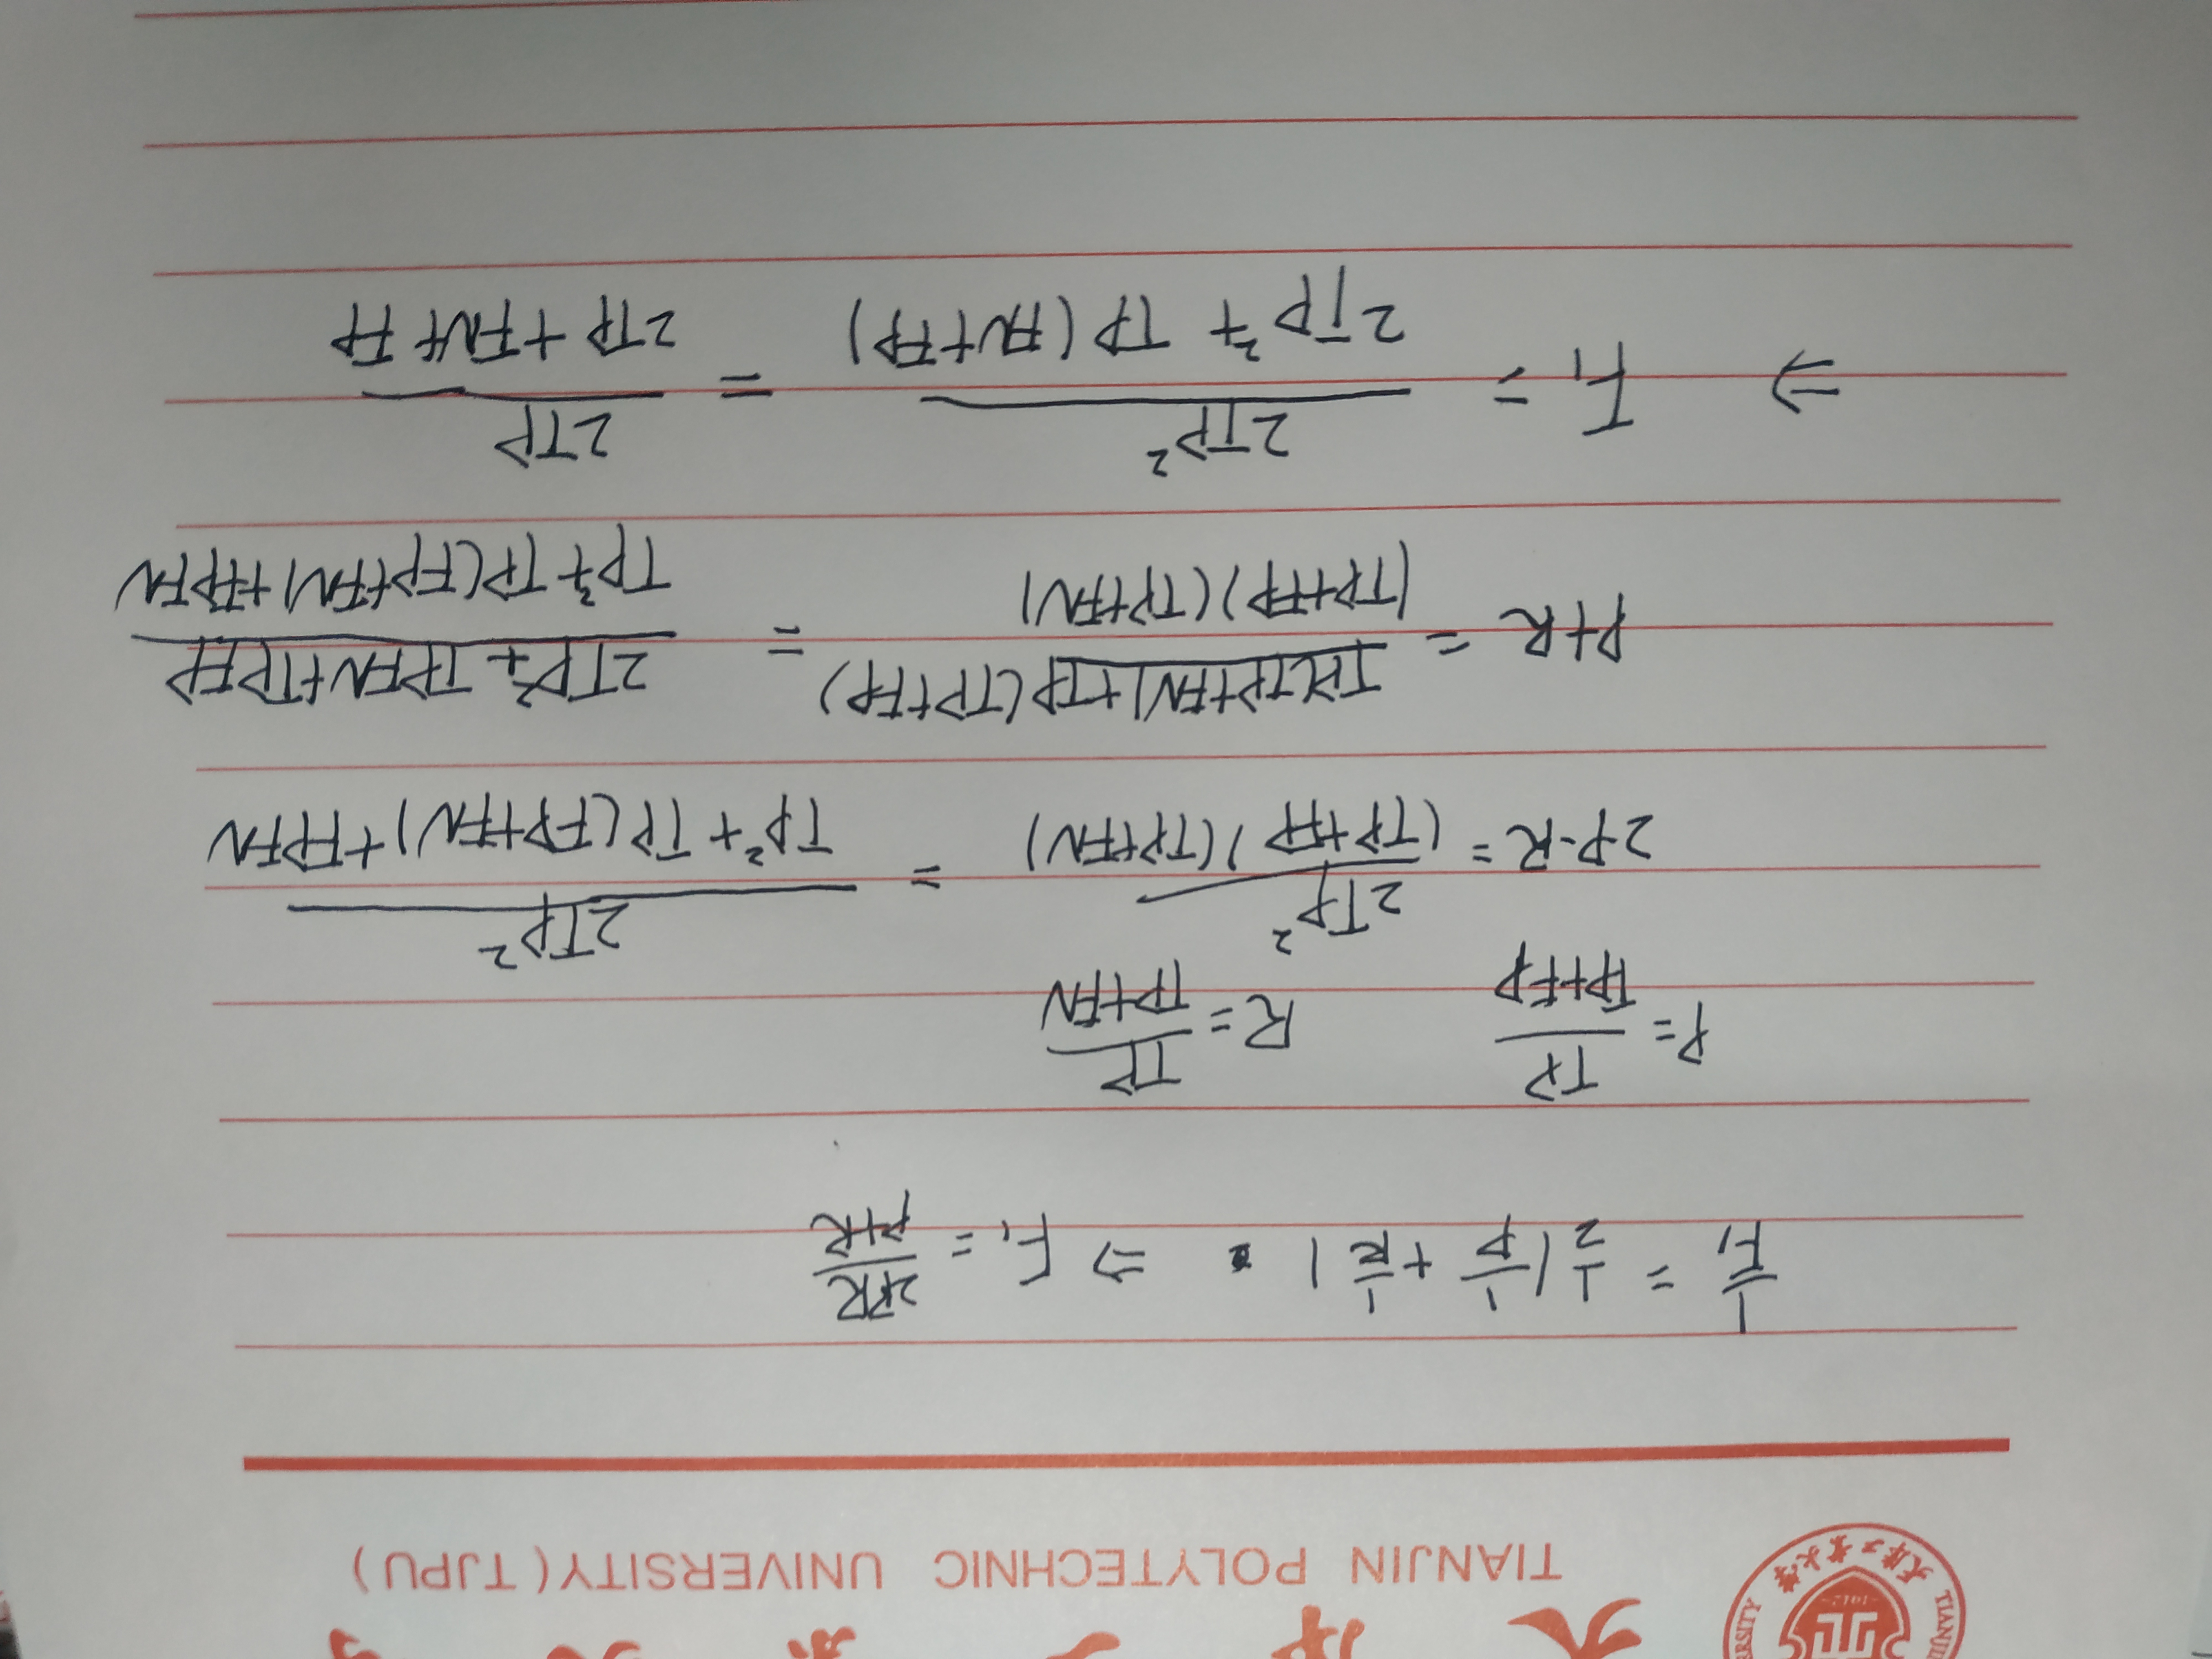 天津工业大学
TIANJIN POLYTECHNIC UNIVERSITY(TJPU)
1912
天津工业大学
1/F₁ = 1/2(1/P + 1/R) ⇒ F₁ = 2PR/(P+R)
P = TP/(TP+FP) R = TP/(TP+FN)
2·P·R = 2TP²/((TP+FP)(TP+FN)) = 2TP²/(TP² + TP(FP+FN) + FPFN)
P+R = (TP(TP+FN)+TP(TP+FP))/((TP+FP)(TP+FN)) = (2TP² + TPFN + TPFP)/(TP² + TP(FP+FN) + FPFN)
⇒ F₁ = 2TP²/(2TP² + TP(FN+FP)) = 2TP/(2TP + FN + FP)